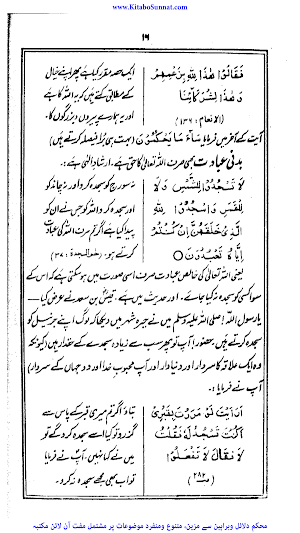 www.KitaboSunnat.com
۱۶
فَقَالُوْا هٰذَا لِلّٰهِ بِزَعْمِهِمْ
وَهٰذَا لِشُرَكَآئِنَا
(الانعام: ۱۳۶)
ایک حصہ مقرر کیا ہے پھر اپنے خیال
کے مطابق کہتے ہیں کہ یہ اللہ کا ہے
اور یہ ہمارے پیروں، بزرگوں کا۔
آیت کے آخر میں فرمایا سَآءَ مَا يَحْكُمُوْنَ (بہت ہی برا فیصلہ کرتے ہیں)
بدنی عبادت بھی صرف اللہ تعالیٰ کا حق ہے، ارشادِ الٰہی ہے:
لَا تَسْجُدُوْا لِلشَّمْسِ وَلَا
لِلْقَمَرِ وَاسْجُدُوْا لِلّٰهِ
الَّذِيْ خَلَقَهُنَّ اِنْ كُنْتُمْ
اِيَّاهُ تَعْبُدُوْنَ○
نہ سورج کو سجدہ کرو اور نہ چاند کو
اور سجدہ کرو اللہ کو جس نے ان کو
پیدا کیا ہے اگر تم صرف اللہ کی عبادت
کرتے ہو۔
یعنی اللہ تعالیٰ کی خالص عبادت صرف اسی صورت میں ہو سکتی ہے کہ اس کے
سوا کسی کو سجدہ نہ کیا جائے۔ اور حدیث میں ہے، قیس بن سعد نے عرض کیا۔
یا رسول اللہ! صلی اللہ علیہ وسلم میں نے حیرہ شہر میں دیکھا کہ لوگ اپنے جرنیل کو
سجدہ کرتے ہیں۔ حضور! آپ تو پھر سب سے زیادہ سجدے کے حقدار ہیں (کیونکہ
وہ ایک علاقہ کا سردار اور دنیادار اور آپ محبوبِ خدا اور دو جہاں کے سردار)
آپ نے فرمایا:
اَرَاَيْتَ لَوْ مَرَرْتَ بِقَبْرِيْ
اَكُنْتَ تَسْجُدُ لَهُ فَقُلْتُ
لَا فَقَالَ لَا تَفْعَلُوْا
بتاؤ اگر تم میری قبر کے پاس سے
گزرو تو کیا اسے سجدہ کرو گے تو
میں نے کہا نہیں، آپ نے فرمایا
تو اب بھی مجھے سجدہ نہ کرو۔
محکم دلائل وبراہین سے مزین، متنوع ومنفرد موضوعات پر مشتمل مفت آن لائن مکتبہ